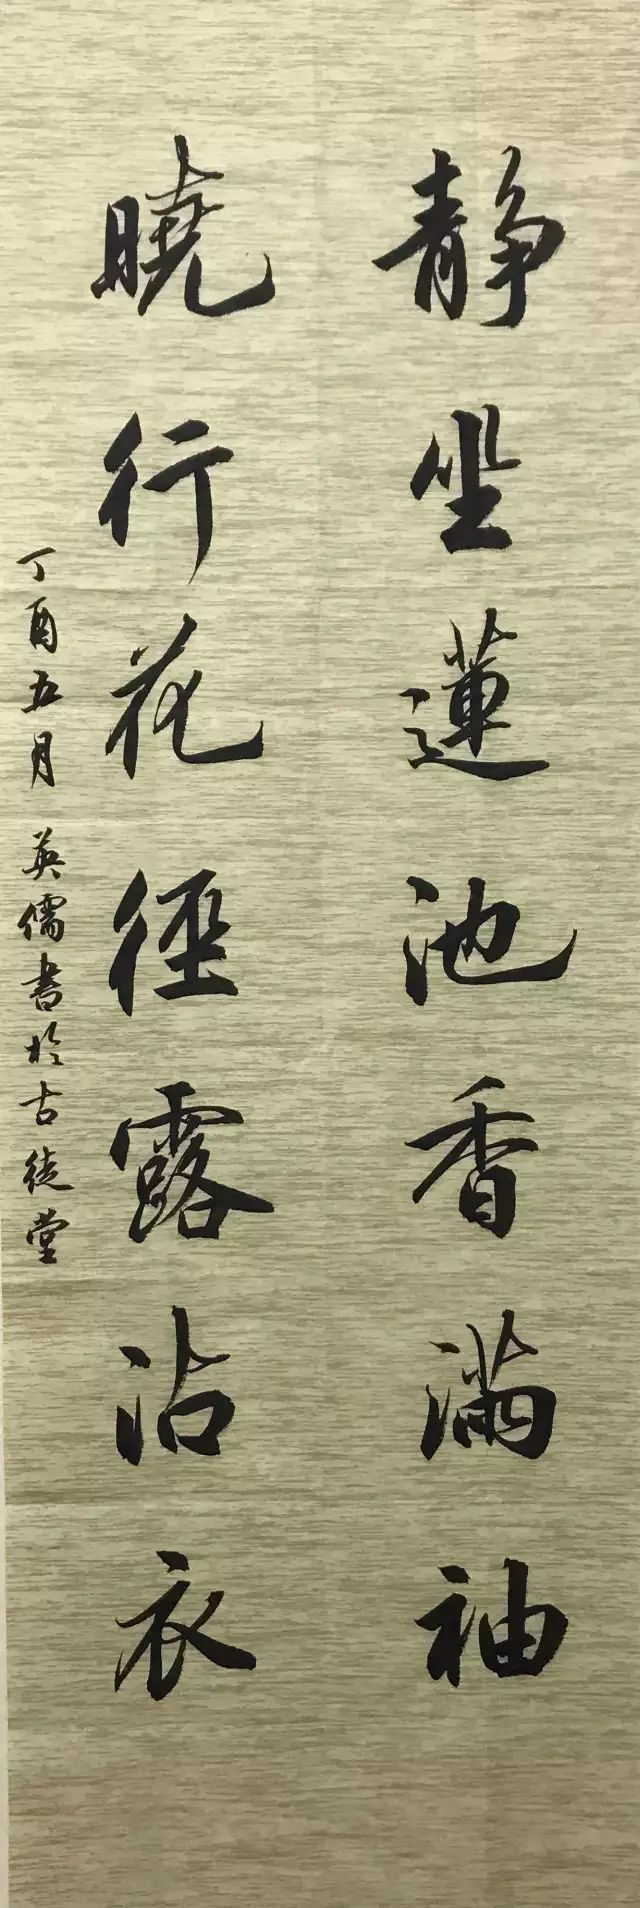 静坐蓮池香满袖
曉行花徑露沾衣
丁酉五月 英儒書於古徒堂